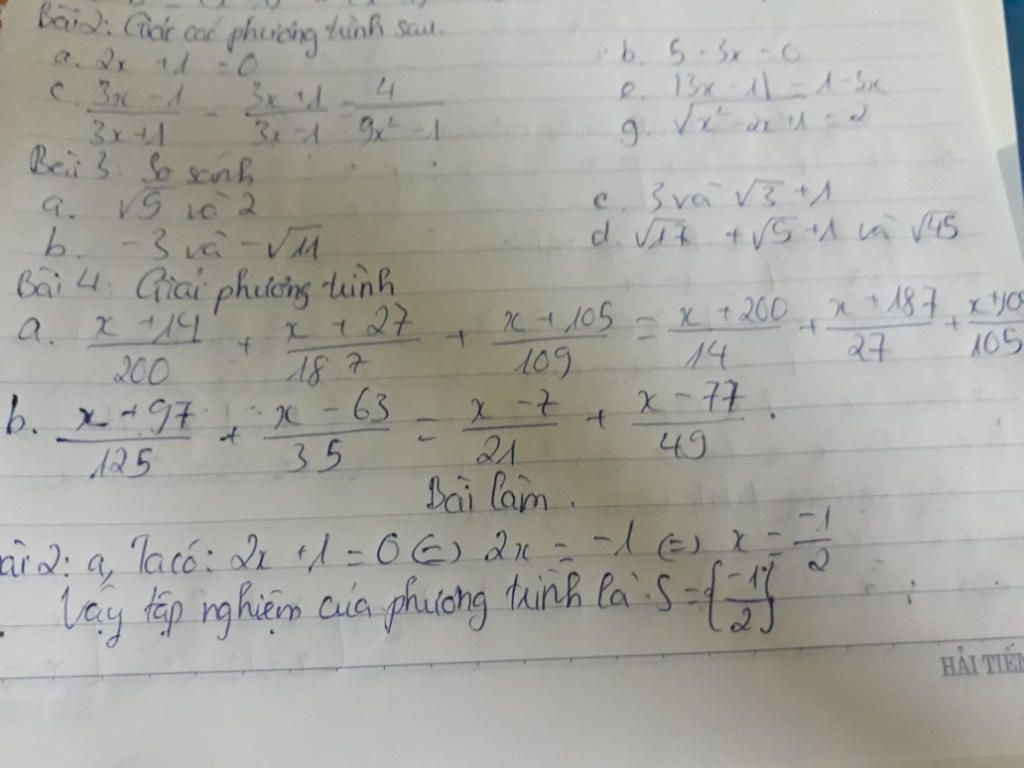 Bài 2: Giải các phương trình sau.
a. 2x + 1 = 0 b. 5 - 3x = 0
c. \frac{3x - 1}{3x + 1} - \frac{3x + 1}{3x - 1} = \frac{4}{9x² - 1} e. |3x - 1| = 1 - 3x
g. √(x² - 2x + 1) = 2
Bài 3: So sánh
a. √5 và 2 c. 3 và √3 + 1
b. -3 và -√11 d. √17 + √5 + 1 và √45
Bài 4: Giải phương trình
a. \frac{x + 14}{200} + \frac{x + 27}{187} + \frac{x + 105}{109} = \frac{x + 200}{14} + \frac{x + 187}{27} + \frac{x + 10}{105}
b. \frac{x + 97}{125} + \frac{x - 63}{35} = \frac{x - 7}{21} + \frac{x - 77}{49}.
Bài làm.
ài 2: a, Ta có: 2x + 1 = 0 ⇔ 2x = -1 ⇔ x = \frac{-1}{2}
Vậy tập nghiệm của phương trình là S = {\frac{-1}{2}}
HẢI TIẾN